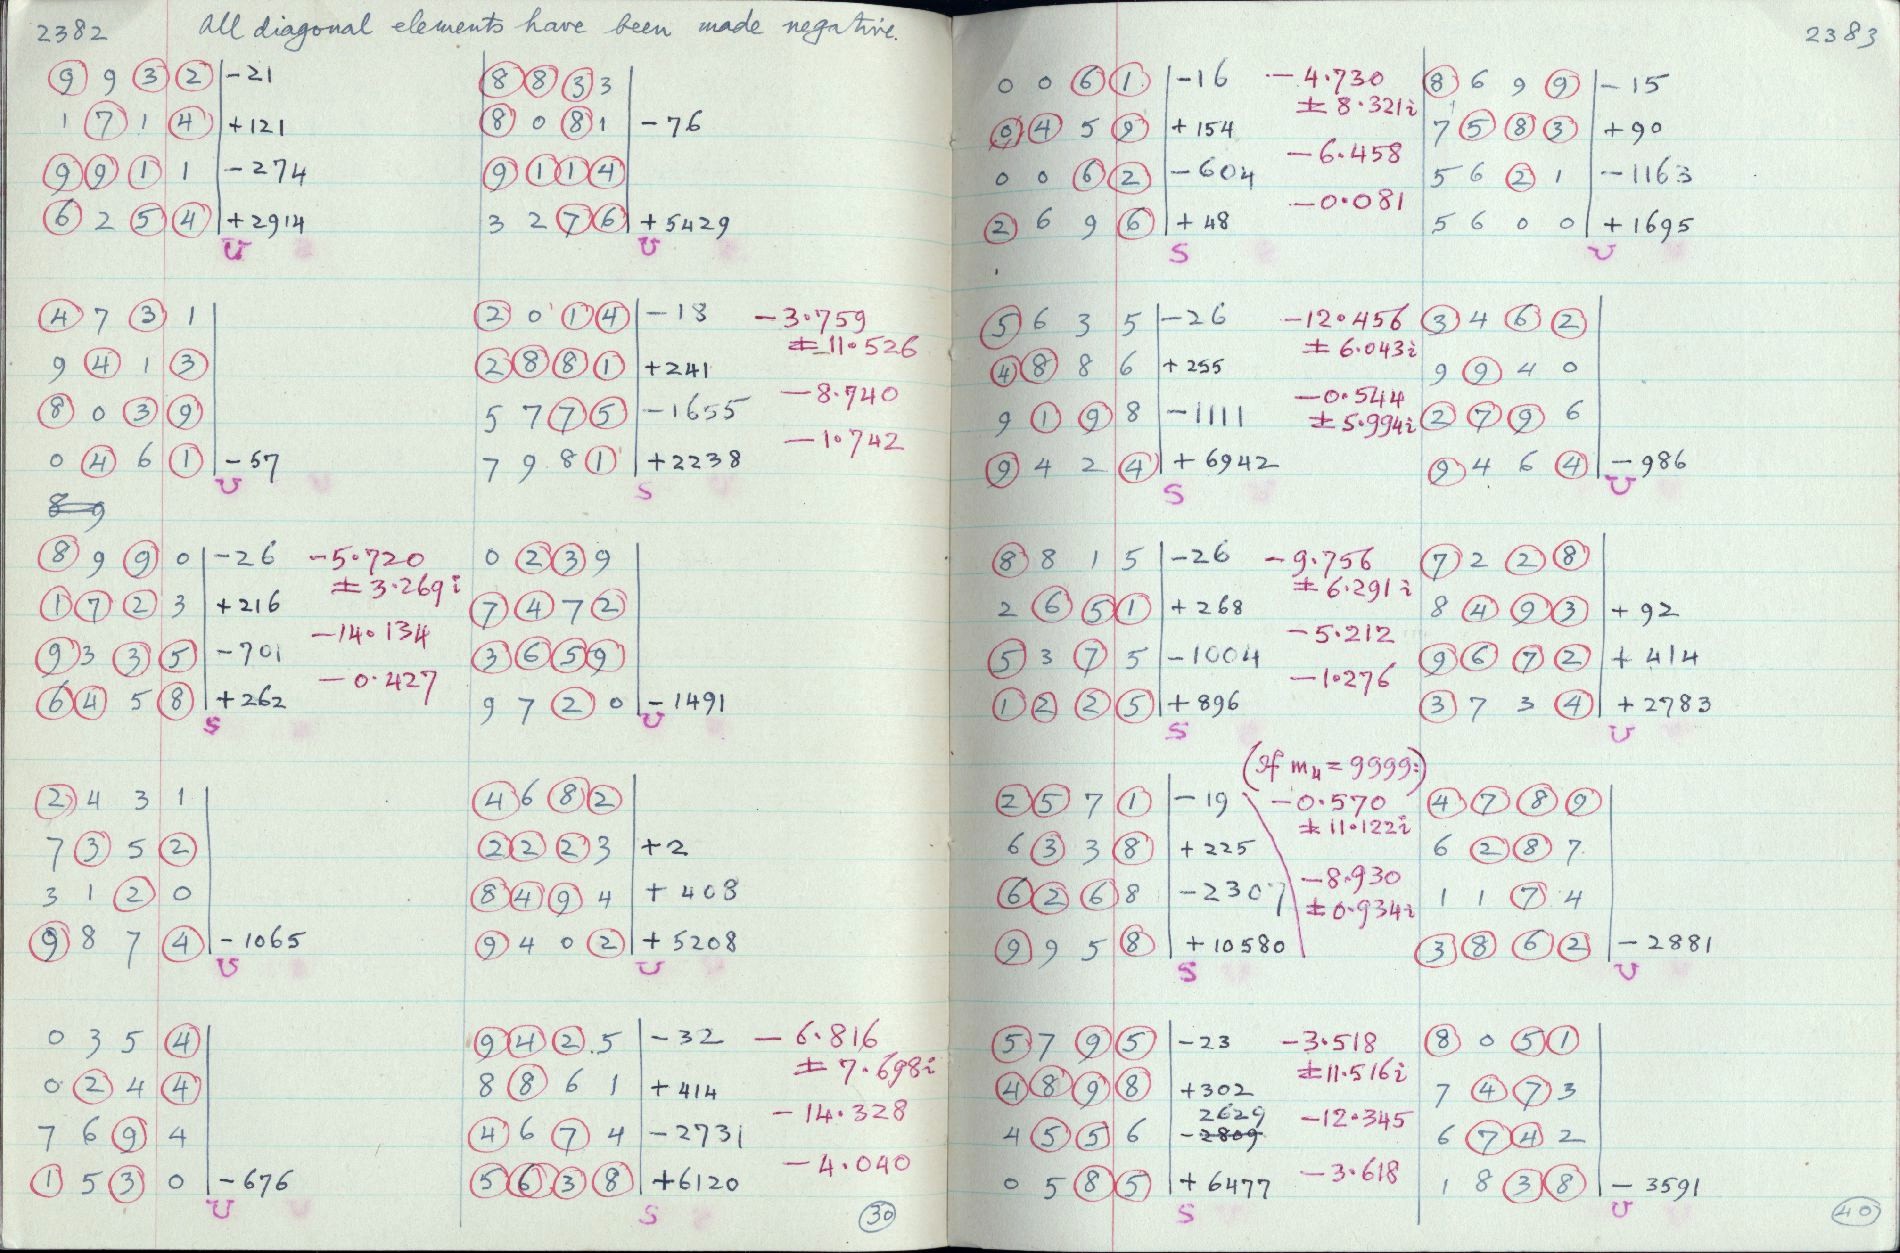 2382 All diagonal elements have been made negative.
9 9 3 2 -21
1 7 1 4 +121
9 9 1 1 -274
6 2 5 4 +2914
U
8 8 3 3
8 0 8 1 -76
9 1 1 4
3 2 7 6 +5429
U
4 7 3 1
9 4 1 3
8 0 3 9
0 4 6 1 -57
U
2 0 1 4 -18 -3.759
±11.526
2 8 8 1 +241
-8.740
5 7 7 5 -1655
-1.742
7 9 8 1 +2238
S
8 9
8 9 9 0 -26 -5.720
±3.269i
1 7 2 3 +216
-14.134
9 3 3 5 -701
-0.427
6 4 5 8 +262
S
0 2 3 9
7 4 7 2
3 6 5 9
9 7 2 0 -1491
U
2 4 3 1
7 3 5 2
3 1 2 0
9 8 7 4 -1065
U
4 6 8 2
2 2 2 3 +2
8 4 9 4 +408
9 4 0 2 +5208
U
0 3 5 4
0 2 4 4
7 6 9 4
1 5 3 0 -676
U
9 4 2 5 -32 -6.816
±7.698i
8 8 6 1 +414
-14.328
4 6 7 4 -2731
-4.040
5 6 3 8 +6120
S
30
2383
0 0 6 1 -16 -4.730
±8.321i
0 4 5 9 +154
-6.458
0 0 6 2 -604
-0.081
2 6 9 6 +48
S
8 6 9 9 -15
7 5 8 3 +90
5 6 2 1 -1163
5 6 0 0 +1695
U
5 6 3 5 -26 -12.456
±6.043i
4 8 8 6 +255
-0.544
9 1 9 8 -1111 ±5.994i
9 4 2 4 +6942
S
3 4 6 2
9 9 4 0
2 7 9 6
9 4 6 4 -986
U
8 8 1 5 -26 -9.756
±6.291i
2 6 5 1 +268
-5.212
5 3 7 5 -1004
-1.276
1 2 2 5 +896
S
7 2 2 8
8 4 9 3 +92
9 6 7 2 +414
3 7 3 4 +2783
U
(If m4 = 9999:)
2 5 7 1 -19 -0.570
±11.122i
6 3 3 8 +225
-8.930
6 2 6 8 -2307 ±0.934i
9 9 5 8 +10580
S
4 7 8 9
6 2 8 7
1 1 7 4
3 8 6 2 -2881
U
5 7 9 5 -23 -3.518
±11.516i
4 8 9 8 +302
2629 -12.345
4 5 5 6 -2809
-3.618
0 5 8 5 +6477
S
8 0 5 1
7 4 7 3
6 7 4 2
1 8 3 8 -3591
U
40